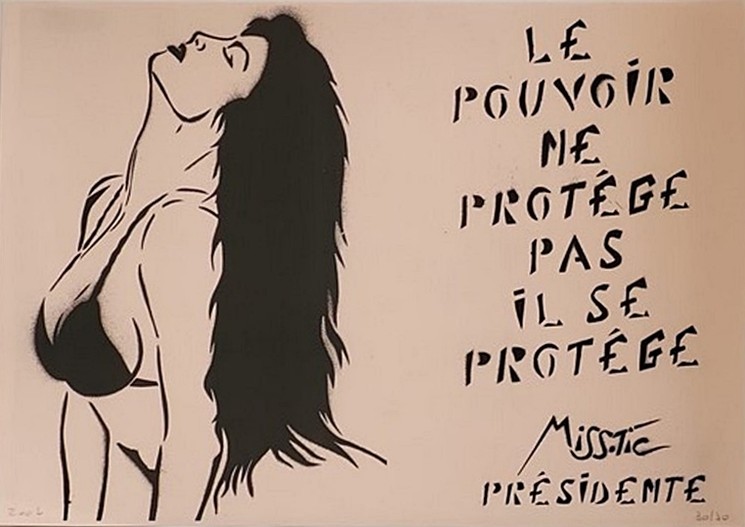 LE
POUVOIR
NE
PROTÉGE
PAS
IL SE
PROTÉGE
Miss.Tic
PRÉSIDENTE
30/30